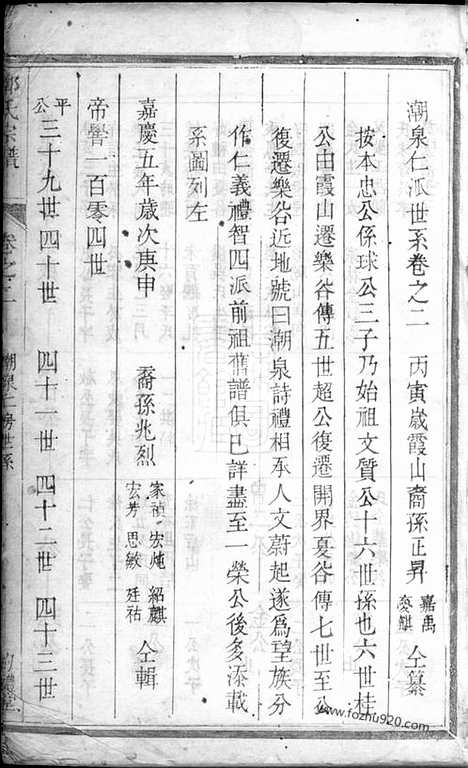 潮泉仁派世系卷之二　丙寅歲霞山裔孫正昇　嘉禹　麥麒　仝纂
按本忠公係球公三子乃始祖文質公十六世孫也六世桂
公由霞山遷樂谷傳五世超公復遷開界夏谷傳七世至公
復遷樂谷近地號曰潮泉詩禮相承人文蔚起遂為望族分
作仁義禮智四派前祖舊譜俱已詳盡至一榮公後多添載
系圖列左
嘉慶五年歲次庚申　裔孫兆烈　家禎　宏炖　紹麒　宏芳　思敏　廷祐　仝輯
帝嚳一百零四世
平公　三十九世　四十世　四十一世　四十二世　四十三世
氏宗譜　卷之二　潮泉仁房世系
www.fozhu920.com